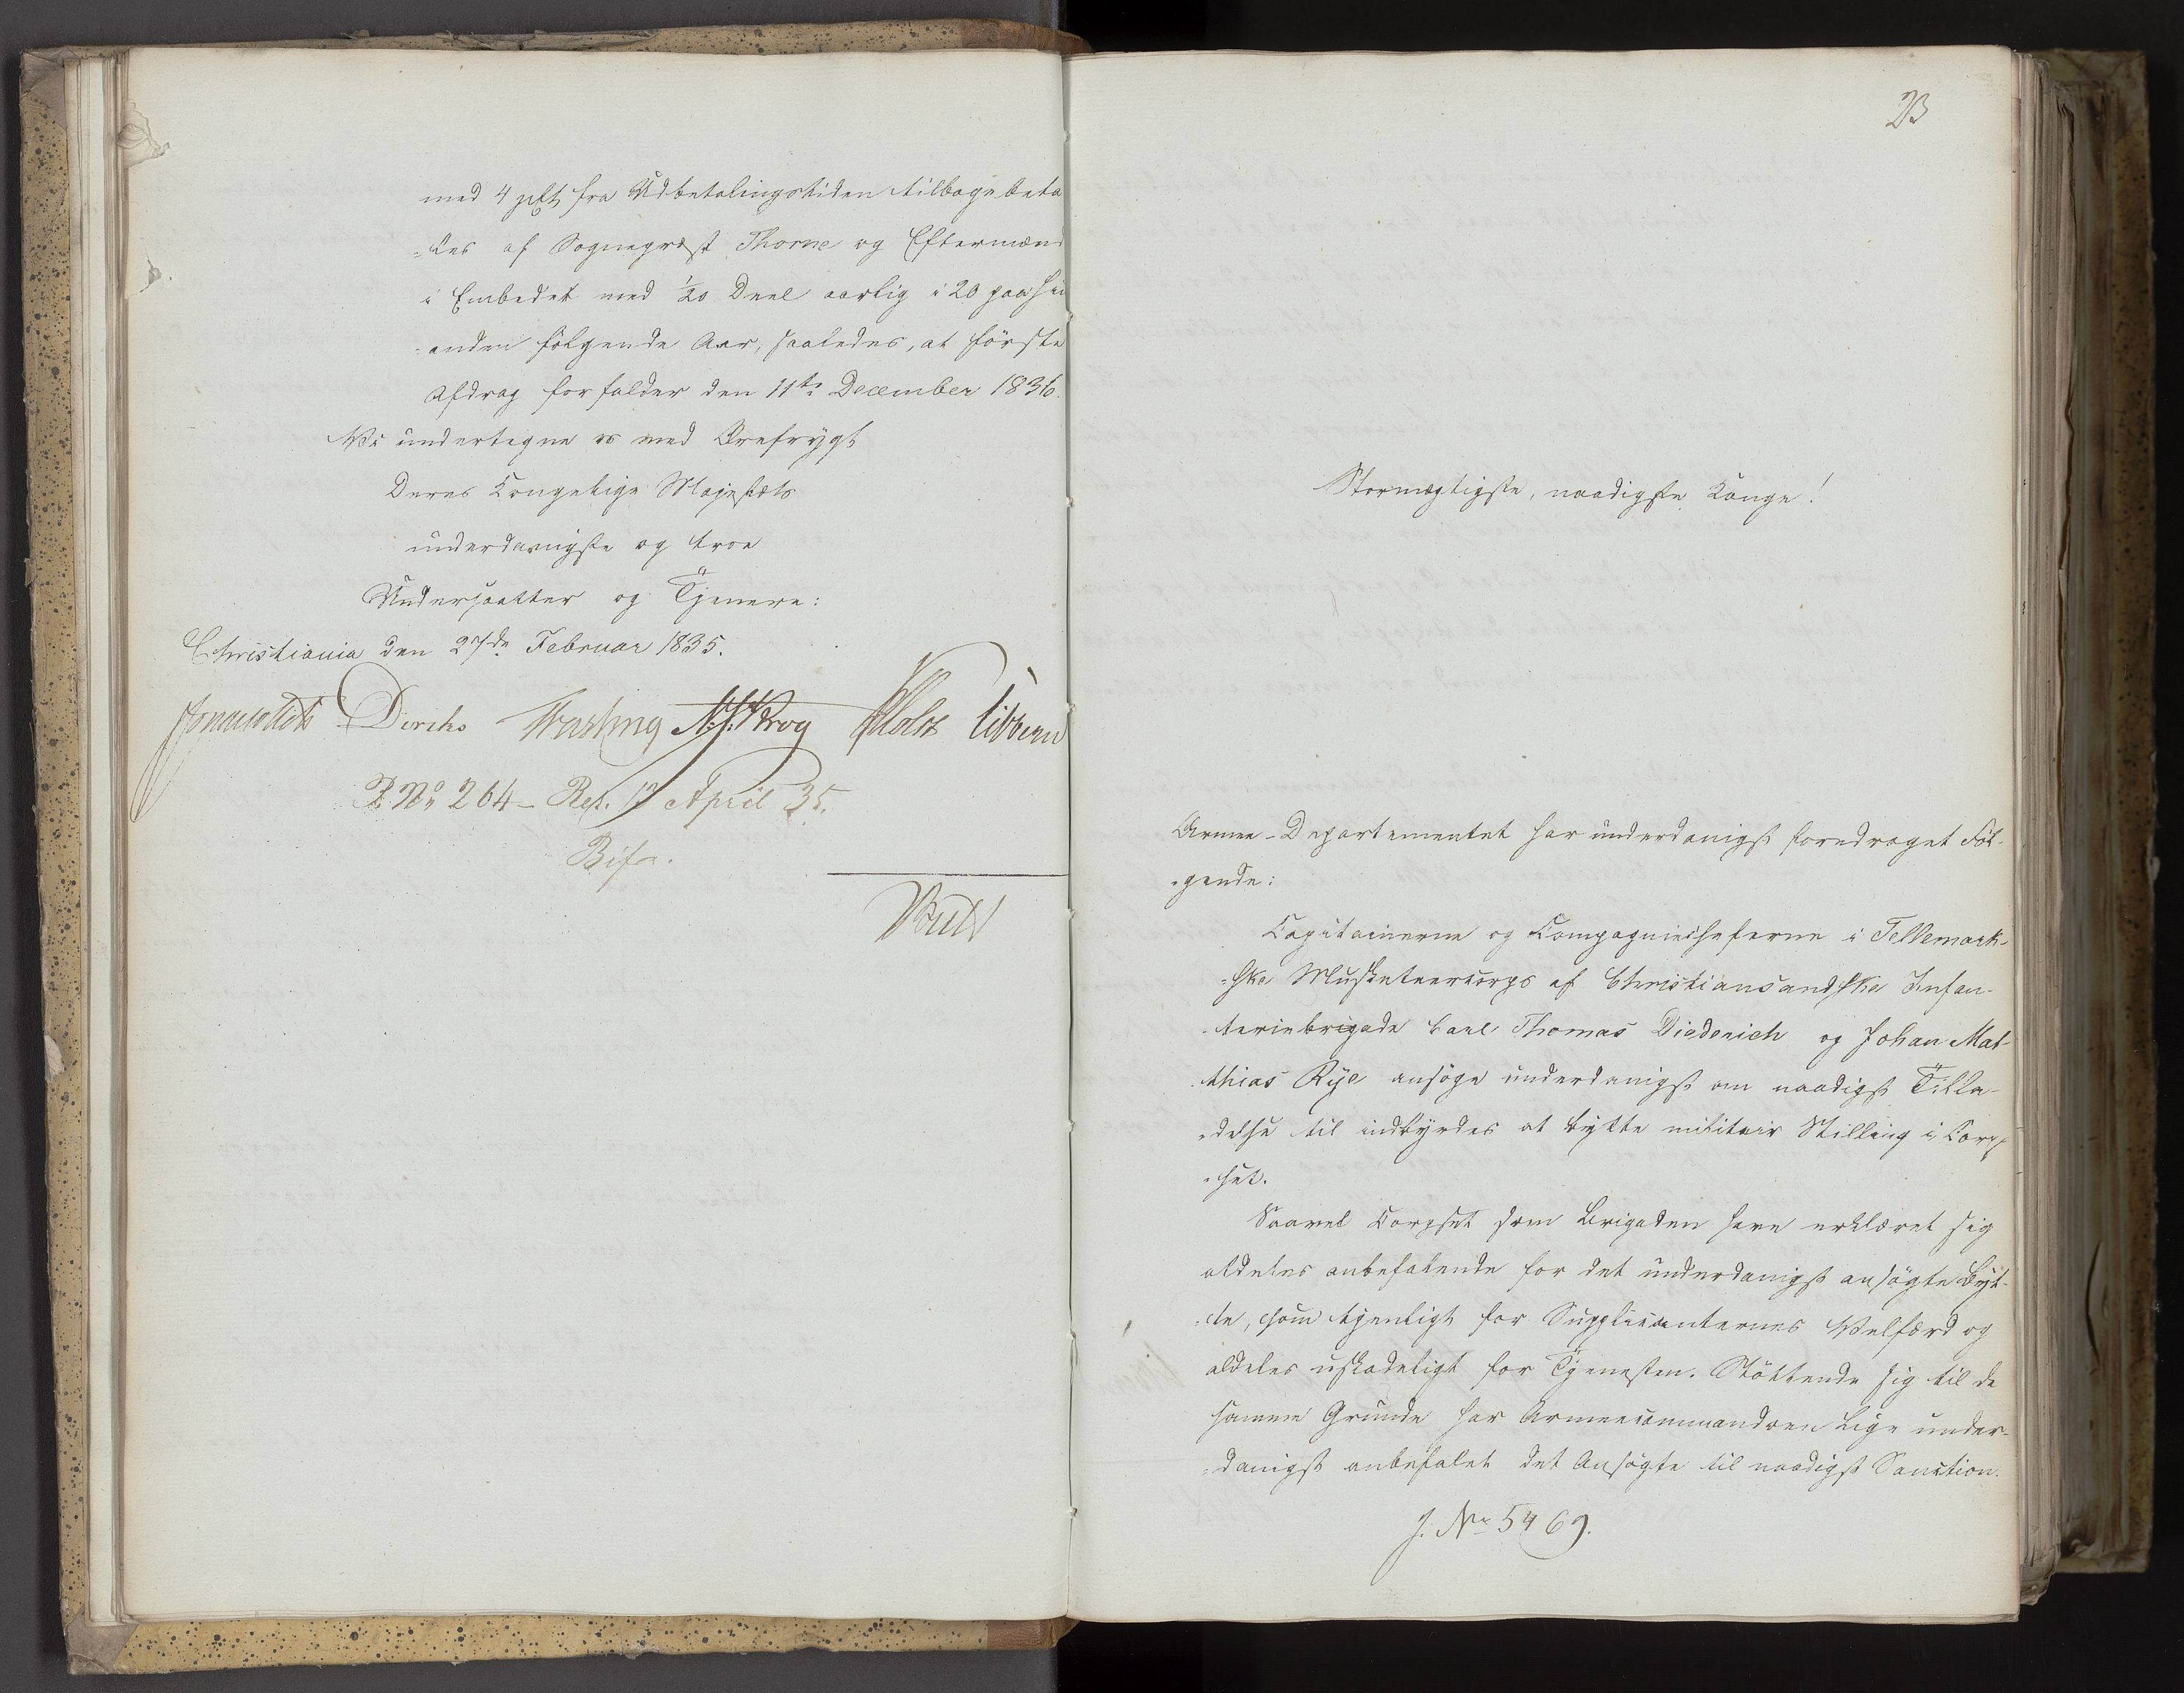 med 4 pCt, fra Udbetalingstiden tilbagebeta
=les af Sognepræst Thorne og Eftermænd
i Embedet med 1/20 Deel aarlig i 20 paa hin
=anden følgende Aar, saaledes, at første
Afdrag forfalder den 11te December 1836.
Vi undertegne os med Ærefrygt
Deres Kongelige Majestæts
underdanigste og troe
Undersaatter og Tjenere:
Christiania den 27de Februar 1835.
Jonas Collett Diriks Fasting N. J. Krog P Holst Vibe
R. No 264 - Res. 17 April 35.
Bif.
23
Stormægtigste, naadigste Konge!
Armee-Departementet har underdanigst foredraget Føl-
=gende:
Capitainerne og Compagniecheferne i Tellemark-
=ske Musketeercorps af Christiansandske Infan-
=teriebrigade Carl Thomas Diederich og Johan Mat-
=thias Rye ansøge underdanigst om naadigst Tilla-
=delse til indbyrdes at bytte militair Stilling i Corp
=set.
Saavel Corpset som Brigaden have erklæret sig
aldeles anbefalende for det underdanigst ansøgte Byt-
=te, som tjenligt for Supplicanternes Velfærd og
aldeles uskadeligt for Tjenesten. Støttende sig til de
samme Grunde har Armeecommandoen lige under-
=danigst anbefalet det Ansøgte til naadigst Sanction.
J. No 5469.